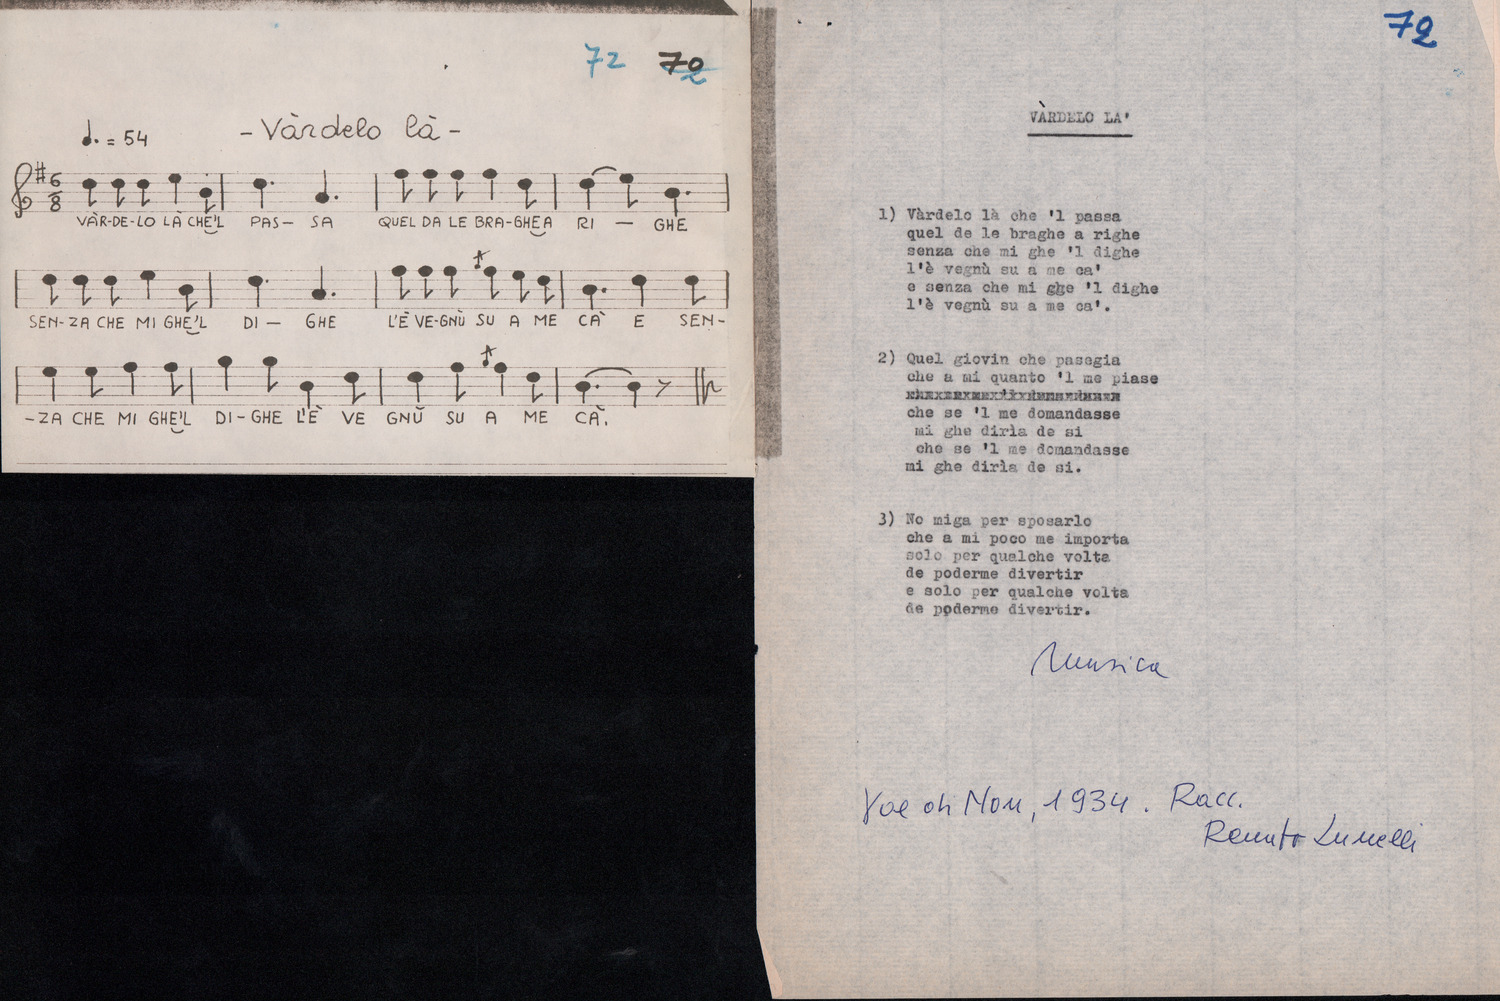 72 70
♩. = 54
- Vàrdelo là -
6
8
VÀR-DE-LO LÀ CHE'L PAS- SA QUEL DA LE BRA-GHE A RI - GHE
SEN-ZA CHE MI GHE'L DI - GHE L'È VE-GNÙ SU A ME CÀ E SEN-
-ZA CHE MI GHE'L DI-GHE L'È VE GNÙ SU A ME CÀ.
72
VÀRDELO LA'
1) Vàrdelo là che 'l passa
quel de le braghe a righe
senza che mi ghe 'l dighe
l'è vegnù su a me ca'
e senza che mi ghe 'l dighe
l'è vegnù su a me ca'.
2) Quel giovin che pasegia
che a mi quanto 'l me piase
che se 'l me domandasse
mi ghe dirìa de si
che se 'l me domandasse
mi ghe dirìa de si.
3) No miga per sposarlo
che a mi poco me importa
solo per qualche volta
de poderme divertir
e solo per qualche volta
de poderme divertir.
Musica
Val di Non, 1934. Racc.
Renato Lunelli